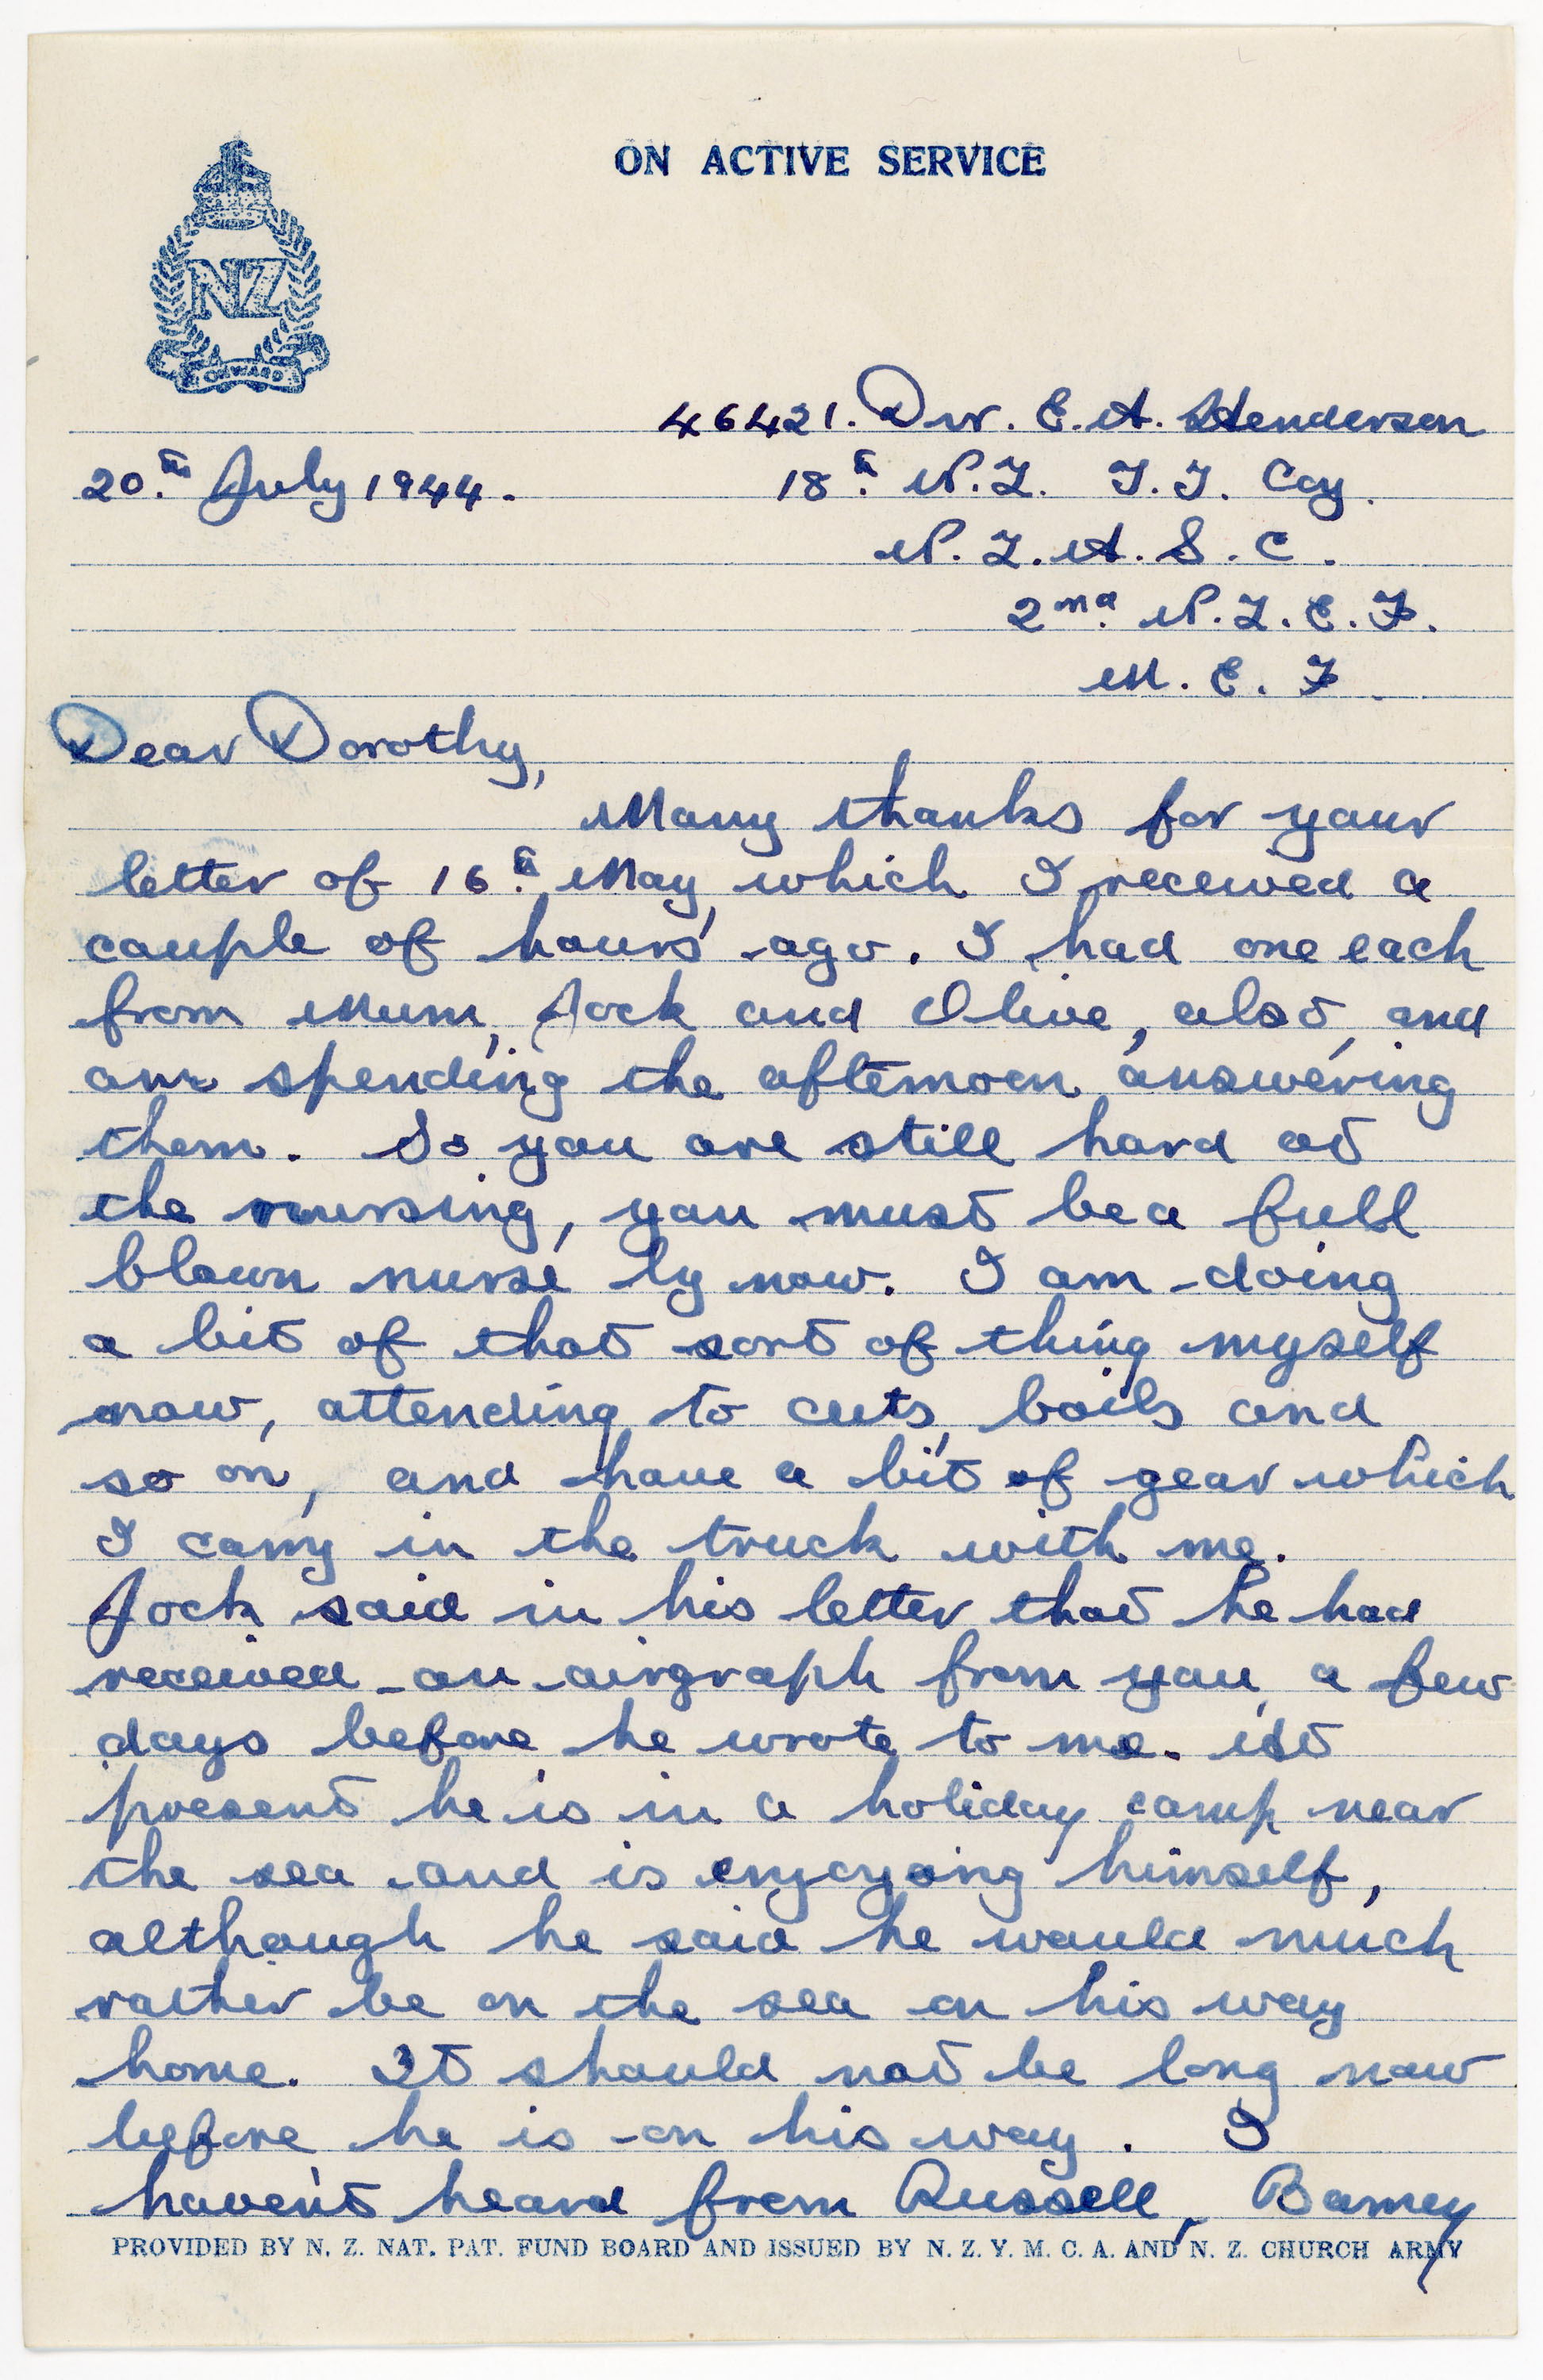 ON ACTIVE SERVICE
NZ
ONWARD
46421. Dvr. E. A. Henderson
20.th July 1944. 18.th N.Z. T.T. Coy.
N. Z. A. S. C.
2nd. N. Z. E. F.
M. E. F.
Dear Dorothy,
Many thanks for your
letter of 16.th May, which I received a
couple of hours ago. I had one each
from Mum, Jock and Olive, also, and
am spending the afternoon answering
them. So you are still hard at
the nursing, you must be a full
blown nurse by now. I am doing
a bit of that sort of thing myself
now, attending to cuts, boils and
so on, and have a bit of gear which
I carry in the truck with me.
Jock said in his letter that he had
received an airgraph from you, a few
days before he wrote to me. At
present he is in a holiday camp near
the sea and is enjoying himself,
although he said he would much
rather be on the sea on his way
home. It should not be long now
before he is on his way. I
haven't heard from Russell, Barney
PROVIDED BY N. Z. NAT. PAT. FUND BOARD AND ISSUED BY N. Z. Y. M. C. A. AND N. Z. CHURCH ARMY